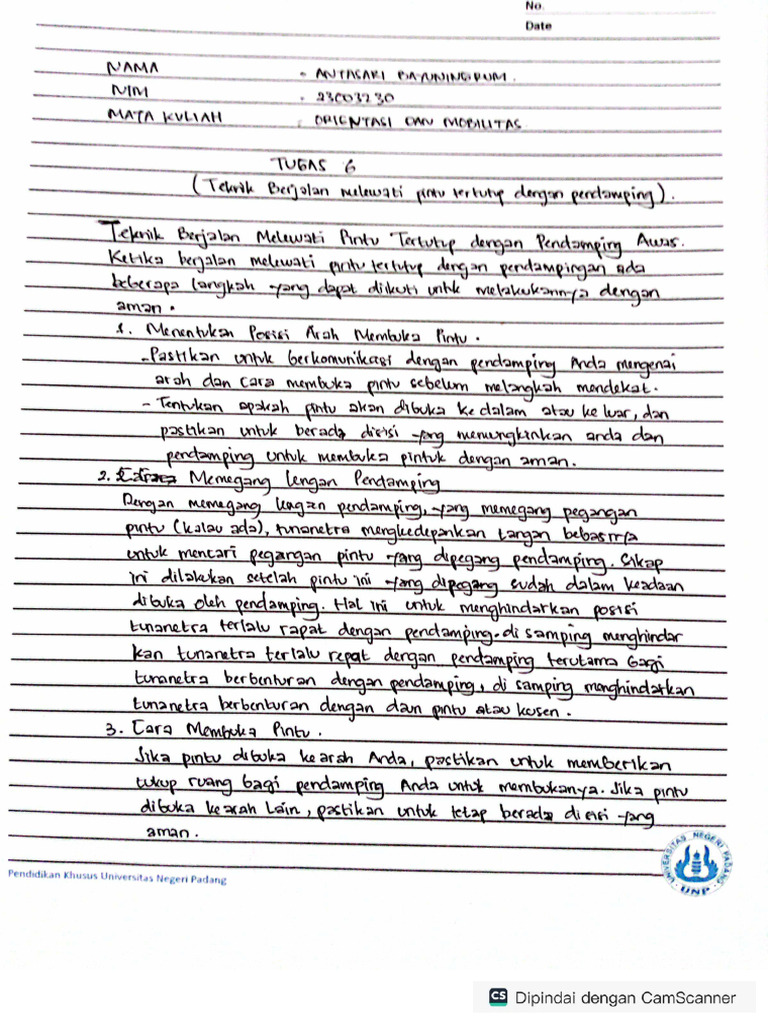 No.
Date
NAMA : ANTASARI BANUNINGRUM.
NIM : 23003230
MATA KULIAH : ORIENTASI DAN MOBILITAS
TUGAS 6
(Teknik Berjalan melewati pintu tertutup dengan pendamping).
Teknik Berjalan Melewati Pintu Tertutup dengan Pendamping Awas.
Ketika berjalan melewati pintu tertutup dengan pendampingan ada
beberapa langkah yang dapat diikuti untuk melakukannya dengan
aman.
1. Menentukan Posisi Arah Membuka Pintu.
- Pastikan untuk berkomunikasi dengan pendamping Anda mengenai
arah dan cara membuka pintu sebelum melangkah mendekat.
- Tentukan apakah pintu akan dibuka kedalam atau keluar, dan
pastikan untuk berada disisi yang memungkinkan anda dan
pendamping untuk membuka pintuk dengan aman.
2. Memegang Lengan Pendamping
Dengan memegang lengan pendamping, yang memegang pegangan
pintu (kalau ada), tunanetra mengkedepankan tangan bebasnya
untuk mencari pegangan pintu yang dipegang pendamping. Sikap
ini dilakukan setelah pintu ini yang dipegang sudah dalam keadaan
dibuka oleh pendamping. Hal ini untuk menghindarkan posisi
tunanetra terlalu rapat dengan pendamping. di samping menghindar
kan tunanetra terlalu repat dengan pendamping terutama bagi
tunanetra berbenturan dengan pendamping, di samping menghindarkan
tunanetra berbenturan dengan daun pintu atau kusen.
3. Cara Membuka Pintu.
Jika pintu dibuka kearah Anda, pastikan untuk memberikan
cukup ruang bagi pendamping Anda untuk membukanya. Jika pintu
dibuka kearah lain, pastikan untuk tetap berada di sisi yang
aman.
Pendidikan Khusus Universitas Negeri Padang
UNIVERSITAS NEGERI PADANG
UNP
CS Dipindai dengan CamScanner